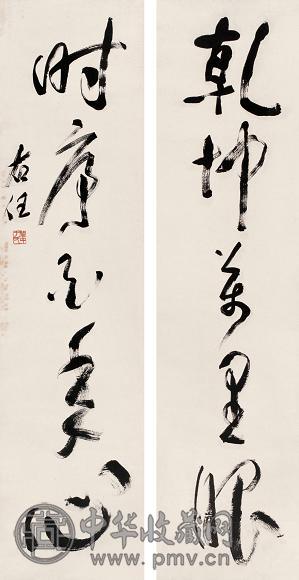 乾坤萬里眼
時序百年心
右任
中华收藏网
www.pmv.cn